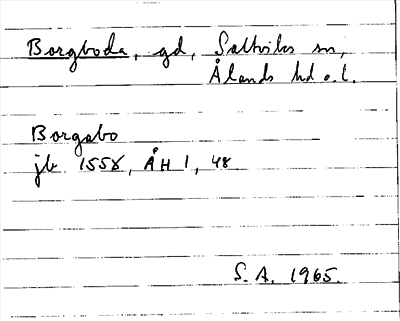 Borgboda, gd, Saltviks sn,
Ålands hd o. l.
Borgabo
jb 1558, ÅH 1, 48
S. A. 1965.